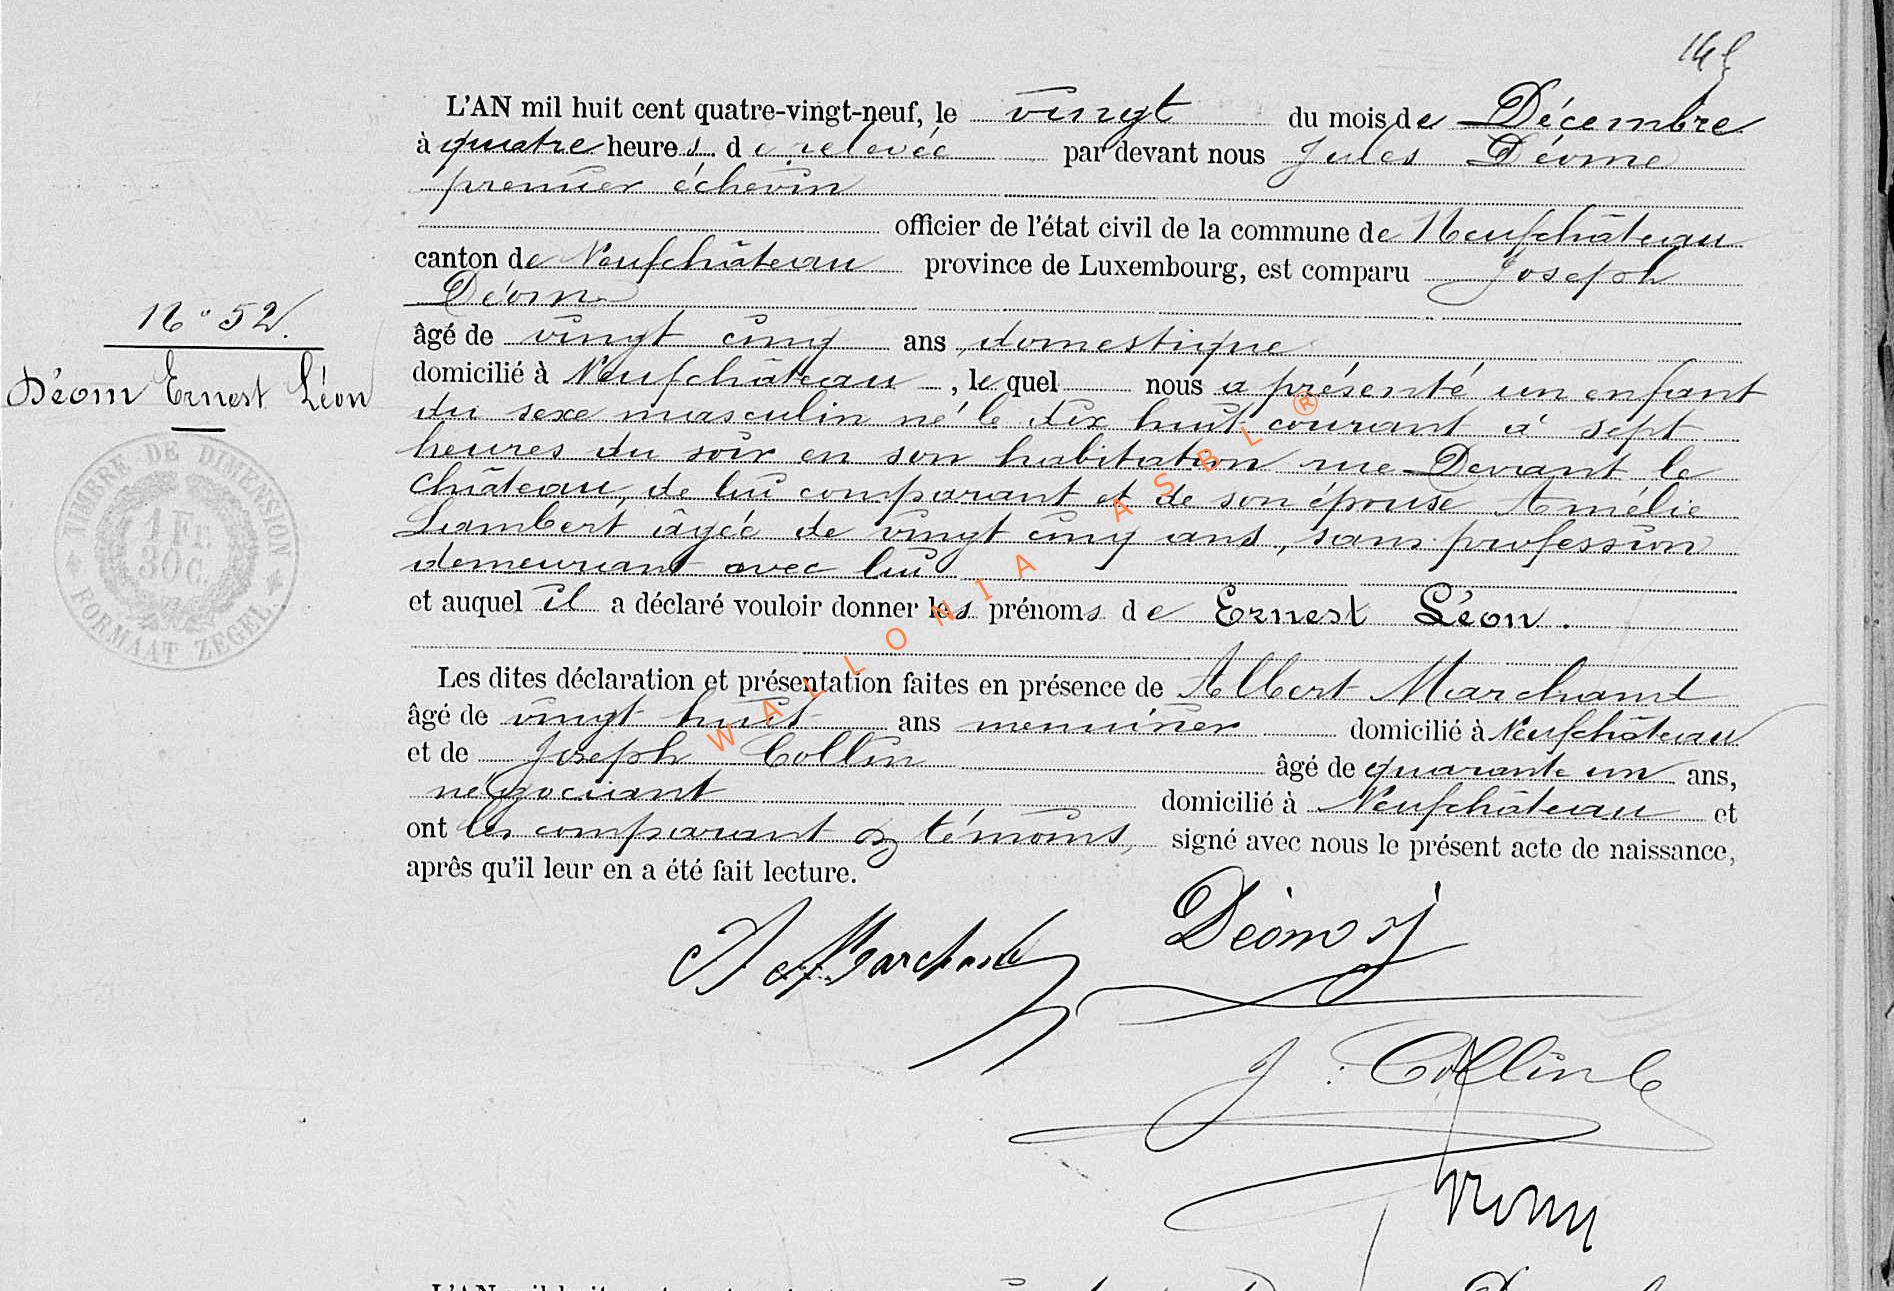 148
L'AN mil huit cent quatre-vingt-neuf, le vingt du mois de Décembre
à quatre heures de relevée par devant nous Jules Déome
premier échevin
officier de l'état civil de la commune de Neufchâteau
canton de Neufchâteau province de Luxembourg, est comparu Joseph
Déom
N° 52.
âgé de vingt cinq ans domestique
Déom Ernest Léon
domicilié à Neufchâteau, lequel nous a présenté un enfant
du sexe masculin né le dix huit courant à sept
heures du soir en son habitation rue Devant le
château, de lui comparant et de son épouse Amélie
Lambert âgée de vingt cinq ans, sans profession
demeurant avec lui
TIMBRE DE DIMENSION
1 Fr.
30 C.
FORMAAT ZEGEL
et auquel il a déclaré vouloir donner les prénoms de Ernest Léon.
Les dites déclaration et présentation faites en présence de Albert Marchand
âgé de vingt huit ans menuisier domicilié à Neufchâteau
et de Joseph Collin âgé de quarante un ans,
négociant domicilié à Neufchâteau et
ont les comparant et témoins, signé avec nous le présent acte de naissance,
après qu'il leur en a été fait lecture.
WALLONIA ASBL ®
A Marchand
Déom J
J. Collin